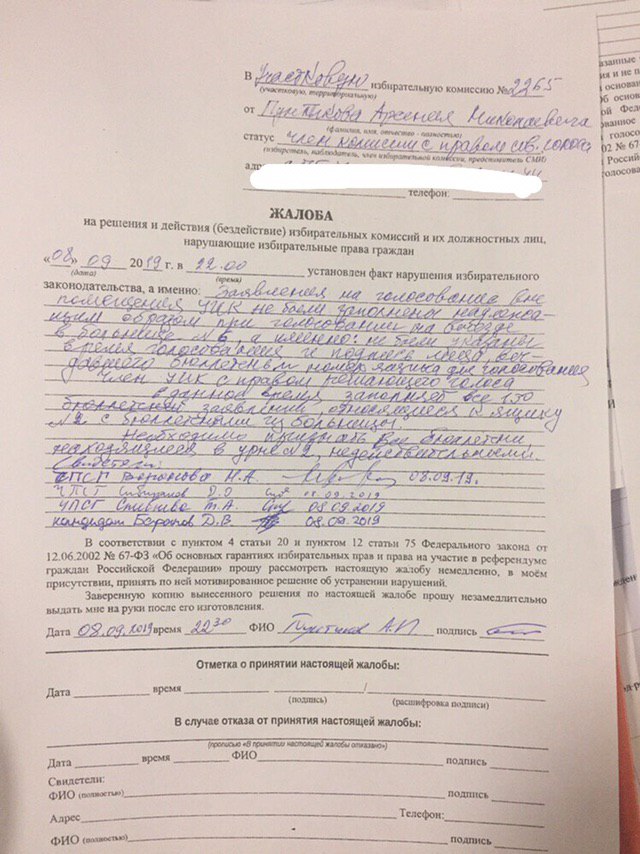 В Участковую избирательную комиссию № 2265
(участковую, территориальную)
от Арсения Николаевича
(фамилия, имя, отчество - полностью)
статус член комиссии с правом
(избиратель, наблюдатель, член избирательной комиссии, представитель СМИ)
телефон:
ЖАЛОБА
на решения и действия (бездействие) избирательных комиссий и их должностных лиц,
нарушающие избирательные права граждан
«08» 09 2019 г. в 22.00 установлен факт нарушения избирательного
(дата) (время)
законодательства, а именно: Заявления на голосование вне
помещения УИК не были заполнены надлежа-
щим образом при голосовании на выезде
в больнице № а именно: не были указаны
время голосования и подпись лица вы-
давшего бюллетень и номер ящика для голосования
Член УИК с правом решающего голоса
в данное время заполняет все 150
заявлений, относящиеся к ящику
№2 с бюллетенями из больницы.
Необходимо признать все бюллетени
находящиеся в урне №2, недействительными.
Свидетели:
Воронова Н.А. 08.09.19.
ЧПСГ Д.О 08.09.2019
ЧПСГ М.А. 08.09.2019
кандидат Д.В. 08.09.2019
В соответствии с пунктом 4 статьи 20 и пунктом 12 статьи 75 Федерального закона от
12.06.2002 № 67-ФЗ «Об основных гарантиях избирательных прав и права на участие в референдуме
граждан Российской Федерации» прошу рассмотреть настоящую жалобу немедленно, в моём
присутствии, принять по ней мотивированное решение об устранении нарушений.
Заверенную копию вынесенного решения по настоящей жалобе прошу незамедлительно
выдать мне на руки после его изготовления.
Дата 08.09.2019 время 22 30 ФИО подпись
Отметка о принятии настоящей жалобы:
Дата время /
(подпись) (расшифровка подписи)
В случае отказа от принятия настоящей жалобы:
(прописью «В принятии настоящей жалобы отказано»)
Дата время ФИО подпись
Свидетели:
ФИО (полностью) подпись
Адрес Телефон:
ФИО (полностью) подпись